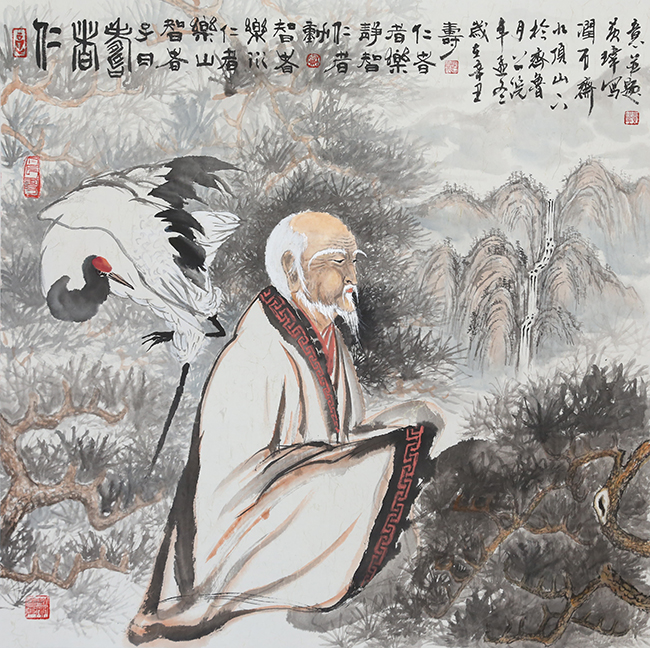 仁者壽
子曰
智者
樂山
仁者
樂水
智者
動
仁者
靜智
者樂
仁者
壽
歲在辛丑
年孟冬
月上浣
於齊魯
九頂山下
潤石齋
黃瑋寫
意並題